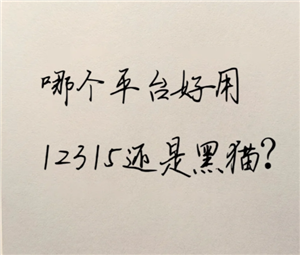 哪个平台好用
12315还是黑猫?